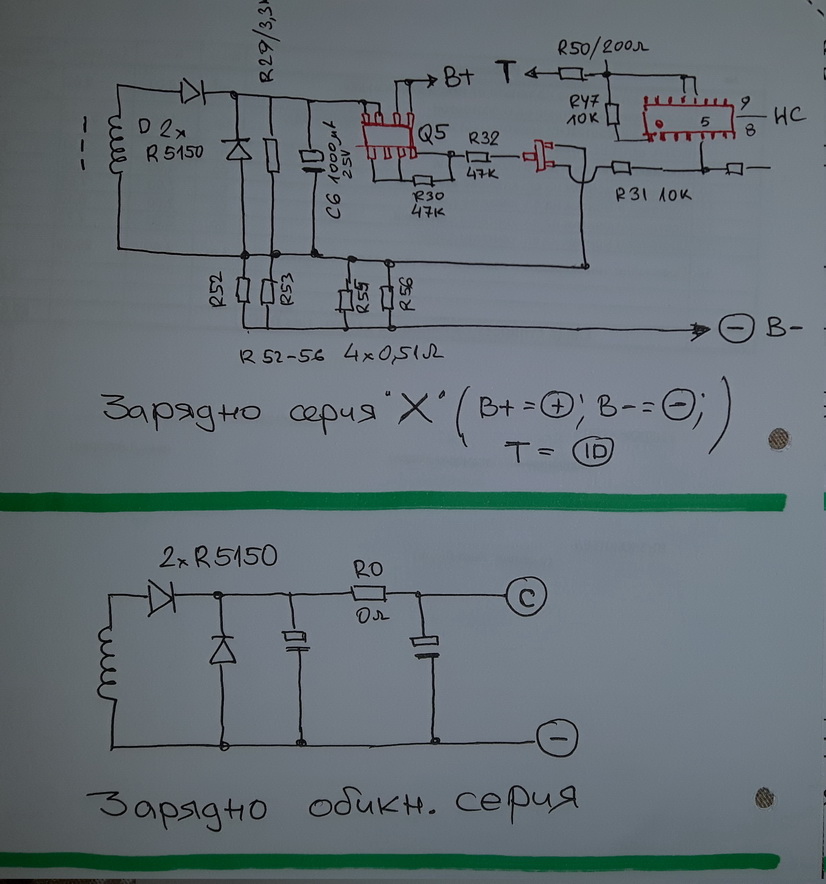 R29/3,3
R50/200Ω
B+
T
D 2x
R5150
C6 1000µF
25V
Q5
R32
47K
R30
47K
R47
10K
5
9
8
HC
R31 10K
R52
R53
R55
R56
B-
R52-56 4x0,51Ω
Зарядно серия "X" (B+=⊕; B-=⊖;
T= ID)
2xR5150
R0
0Ω
C
Зарядно обикн. серия